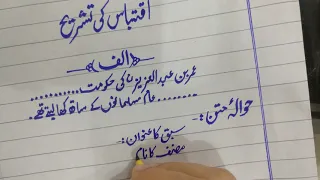 اقتباس کی تشریح
﴿الف﴾
عمر بن عبدالعزیزؒ کی حکومت...........
........عام مسلمانوں کے ساتھ کھا لیتے تھے۔
حوالۂ متن:-
سبق کا عنوان:-
مصنف کا نام